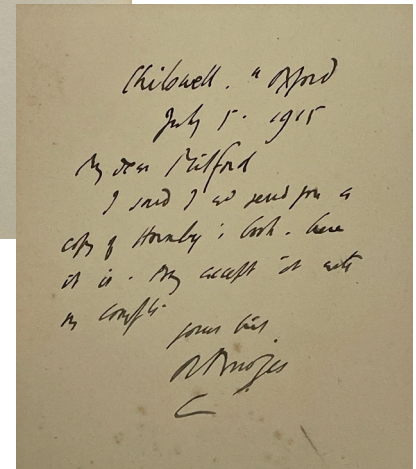 Chilswell. " Oxford
July 5. 1915
My dear Milford
I said I wd send you a
copy of Hornby's book. here
it is. Pray accept it with
my complts.
yours
R Bridges